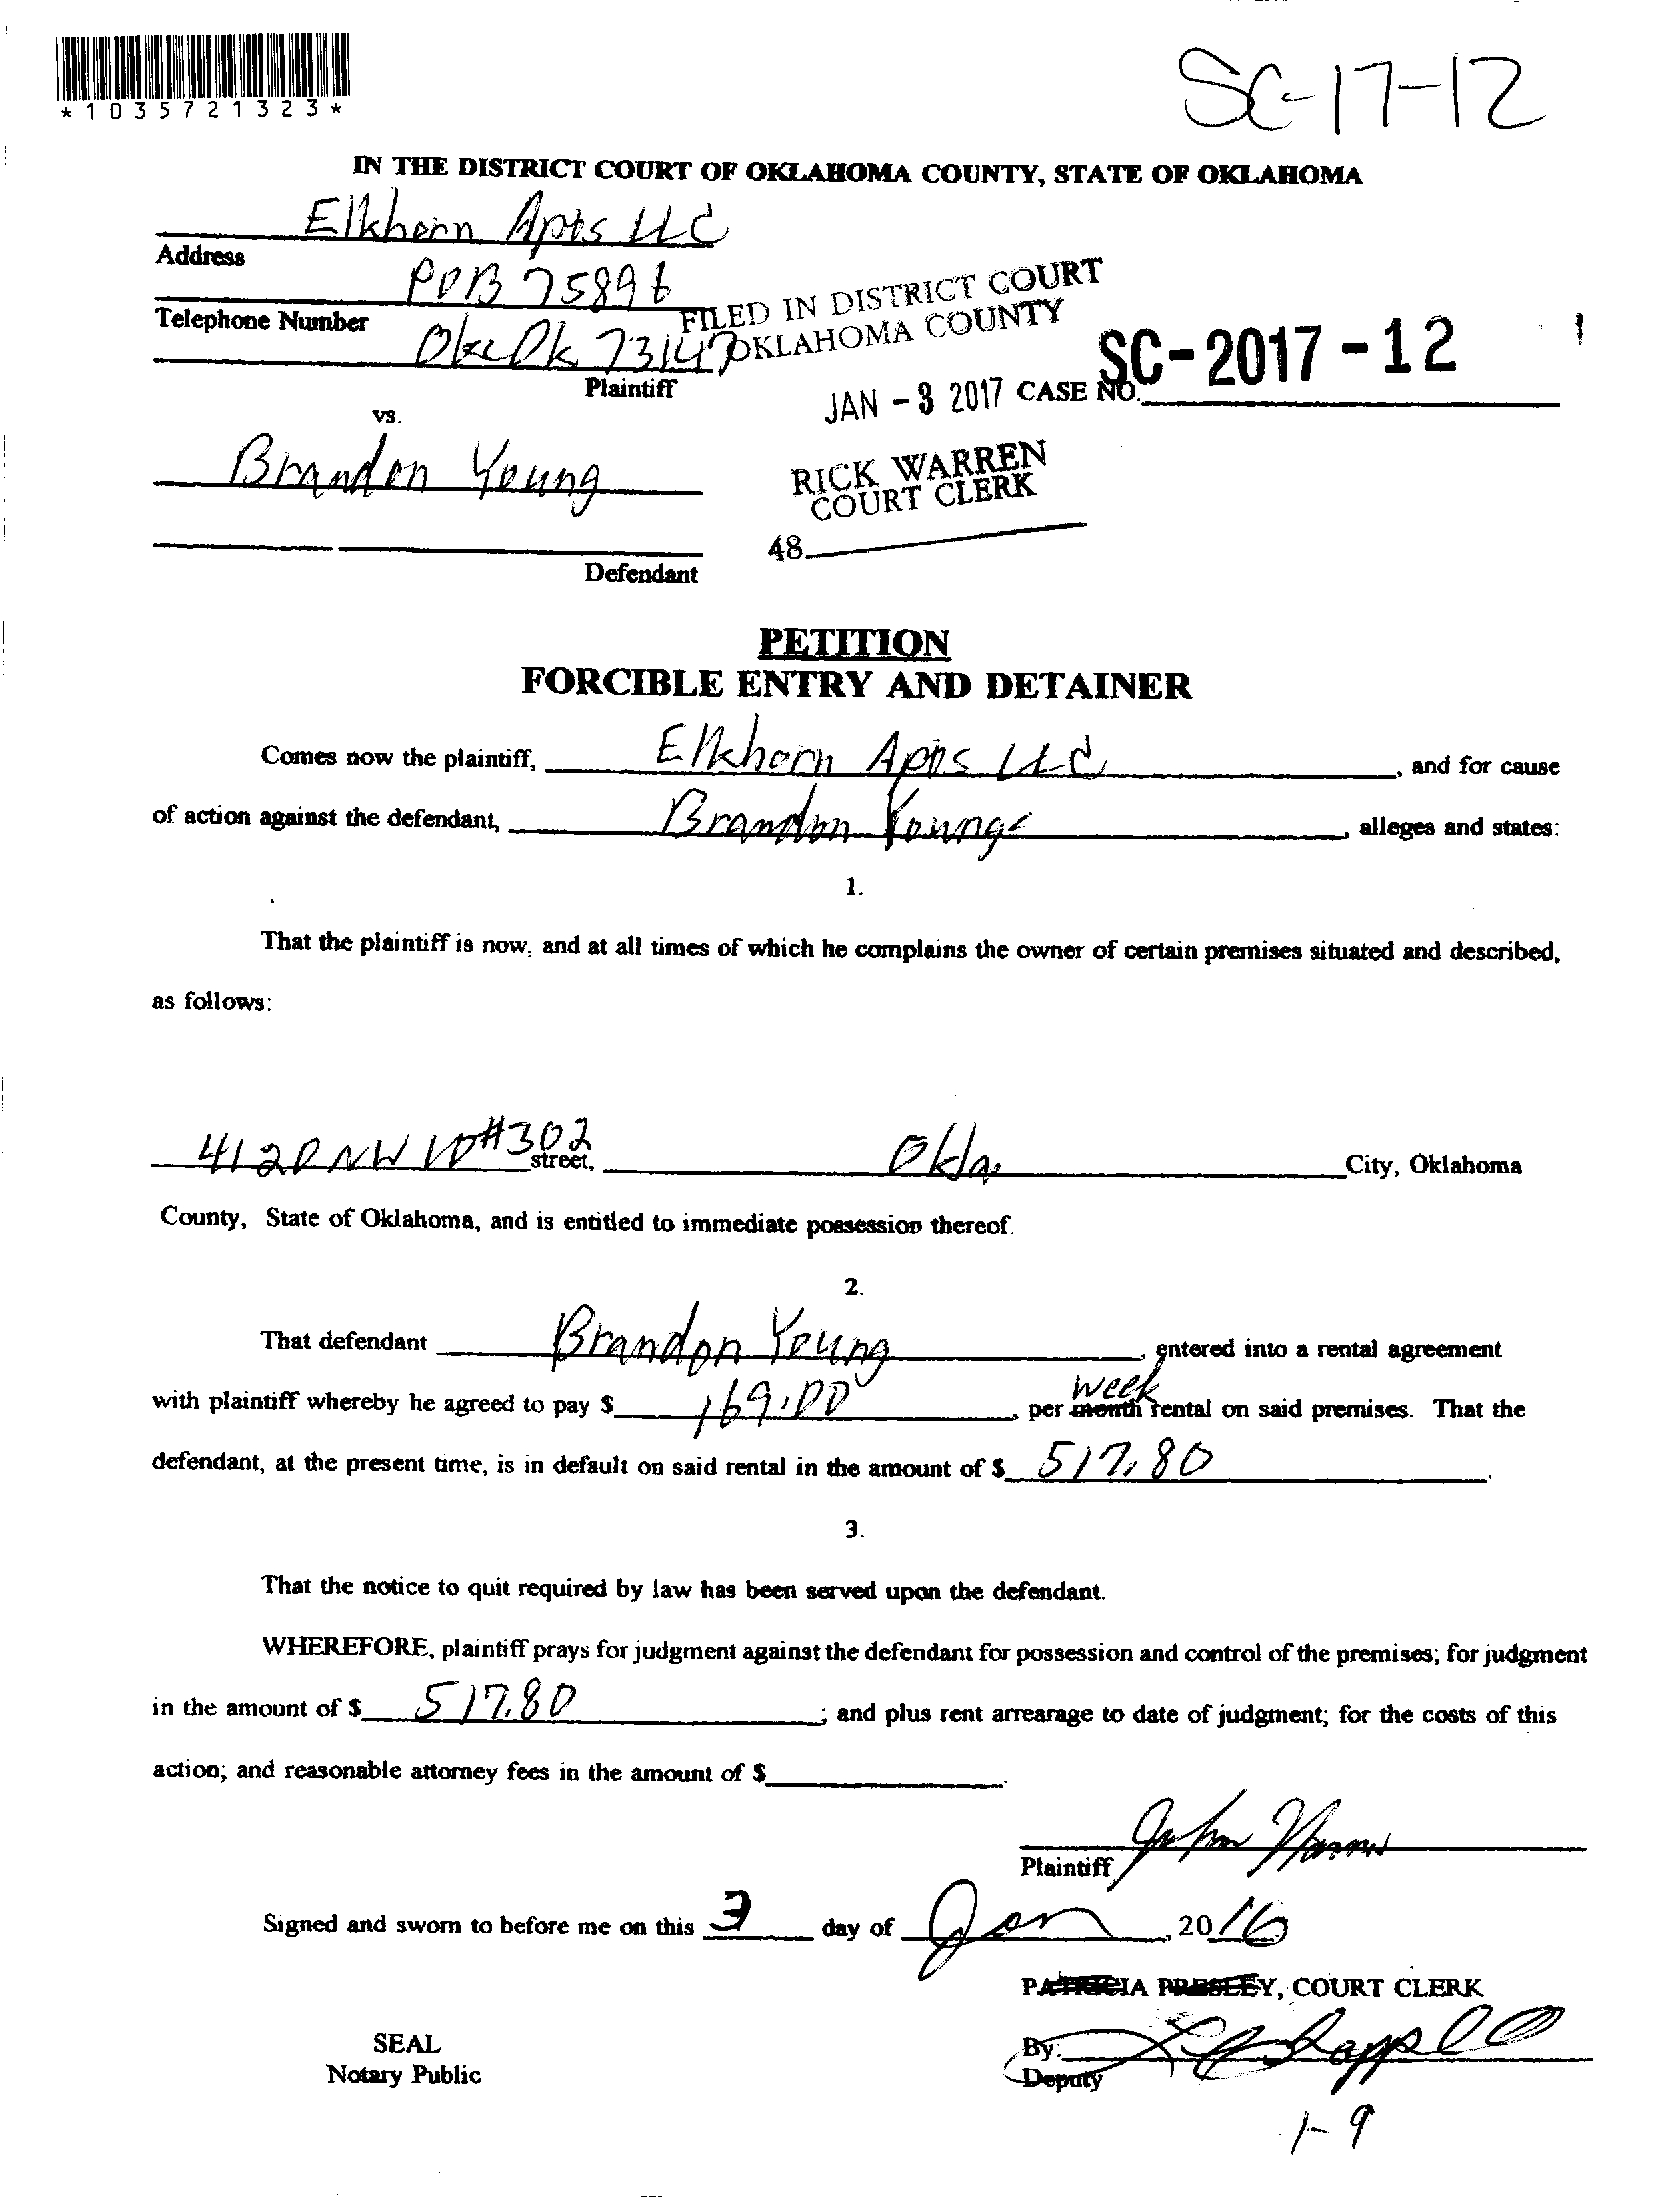 *1035721323*
SC-17-12
IN THE DISTRICT COURT OF OKLAHOMA COUNTY, STATE OF OKLAHOMA
Elkhorn Apts LLC
Address
POB 75896
Telephone Number
Okc Ok 73147
Plaintiff
FILED IN DISTRICT COURT
OKLAHOMA COUNTY
JAN - 3 2017
CASE NO. SC-2017-12
vs.
Brandon Young
RICK WARREN
COURT CLERK
48
Defendant
PETITION
FORCIBLE ENTRY AND DETAINER
Comes now the plaintiff, Elkhorn Apts LLC, and for cause
of action against the defendant, Brandon Young, alleges and states:
1.
That the plaintiff is now, and at all times of which he complains the owner of certain premises situated and described,
as follows:
4120 NW 10 #302 street, Okla. City, Oklahoma
County, State of Oklahoma, and is entitled to immediate possession thereof.
2.
That defendant Brandon Young, entered into a rental agreement
with plaintiff whereby he agreed to pay $ 169.00, per month week rental on said premises. That the
defendant, at the present time, is in default on said rental in the amount of $ 517.80.
3.
That the notice to quit required by law has been served upon the defendant.
WHEREFORE, plaintiff prays for judgment against the defendant for possession and control of the premises; for judgment
in the amount of $ 517.80; and plus rent arrearage to date of judgment; for the costs of this
action; and reasonable attorney fees in the amount of $
John
Plaintiff
Signed and sworn to before me on this 3 day of Jan, 2016
PATRICIA PRESLEY, COURT CLERK
SEAL
By:
Notary Public
Deputy
1-9